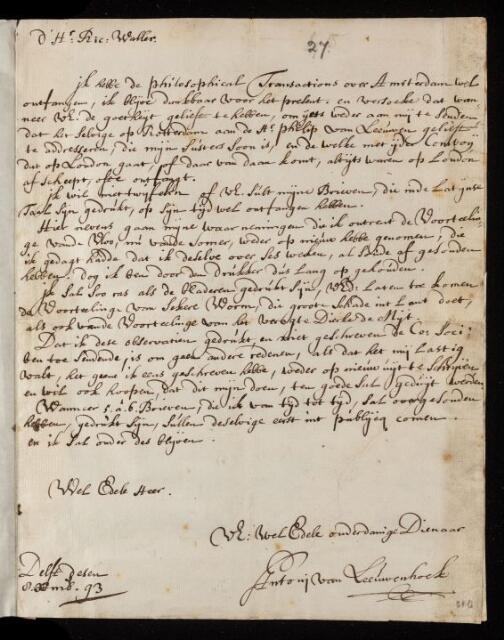 D'Hr. Ric: Waller.
27
ik hebbe de philosophical Transactions over Amsterdam wel
ontfangen, ik blijve dankbaar voor het present. en versoeke dat wan-
neer UE. de goetheijt gelieft te hebben, om ijets weder aan mij te senden,
dat het selvige op Rotterdam aan de Hr. Philip van Leeuwen gelieft
te addresseren, die mijn susters soon is, en de welke met ijder Convoij
dat op London gaat, of daar van daan komt, altijts waren op London
afscheept, ofte ontfangt.
ik wil niet twijfelen of UE. sult mijne Brieven, die inde Latijnse
Taal sijn gedrukt, op sijn tijd wel ontfangen hebben.
Hier nevens gaan mijne waarnemingen die ik ontrent de Voorteelin-
ge vande Vloo, nu vande Somer, weder op nieuw hebbe genomen, die
ik gedagt hadde dat ik deselve over ses weken, al soude af gesonden
hebben. dog ik ben door den drukker dus lang op gehouden.
ik sal soo ras als de bladeren gedrukt sijn, UEd: laten toe komen
de Voorteelinge van sekere Worm, die groote schade int Lant doet,
als ook vande Voorteelinge van het veragte Dierke de Mijt.
Dat ik dese observatien gedrukt, en niet geschreven de Co: Soci:
ben toe sendende, is om geen andere redenen, als dat het mij lastig
valt, het geene ik eens geschreven hebbe, weder op nieuw uijt te schrijven
en wil ook hoopen, dat dit mijn doen, ten goede sal geduijt werden
Wanneer 5. a. 6. Brieven, die ik van tijd tot tijd, sal over gesonden
hebben, gedrukt sijn, sullen deselvige eerst int publijcq comen
en ik sal onder des blijven.
Wel Edele Heer.
UE: Wel Edele onderdanige Dienaar
Antonij van Leeuwenhoek
Delft desen
93